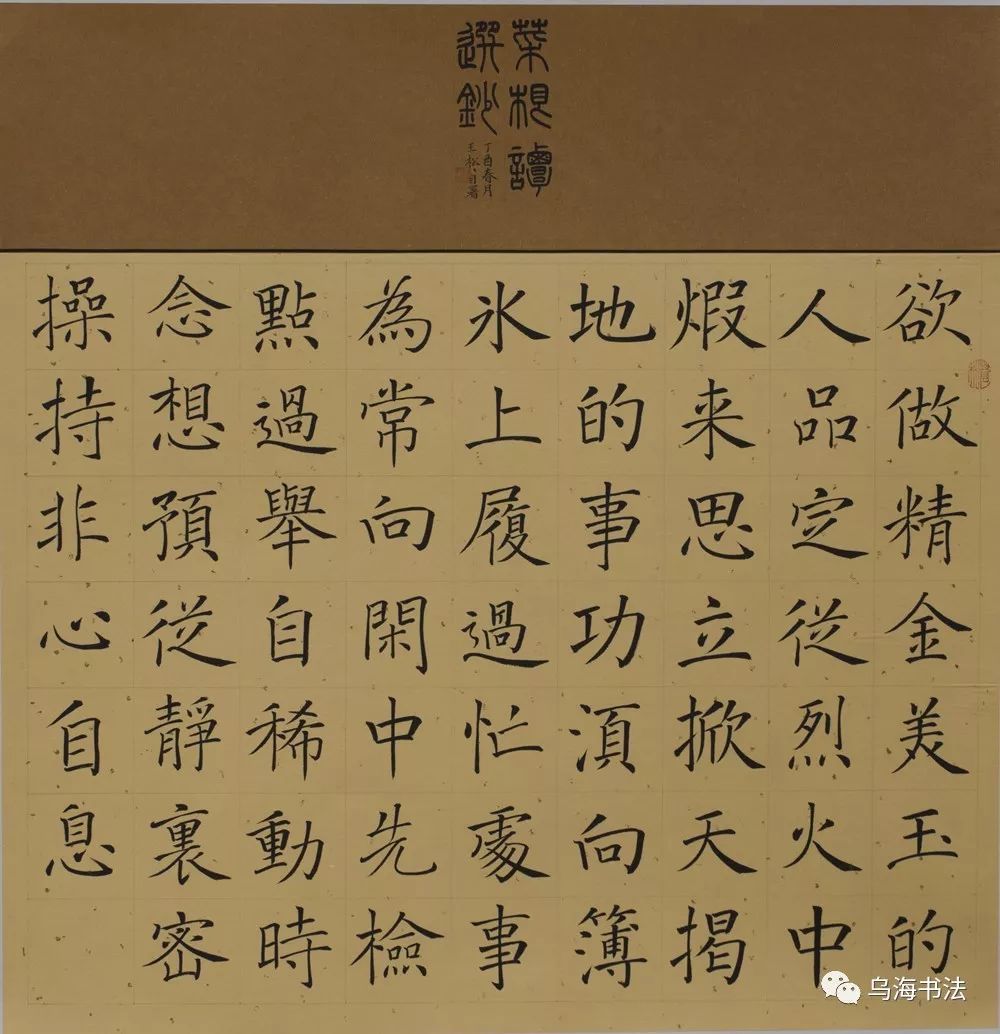 菜根譚
選鈔
丁酉春月
王松自署
欲做精金美玉的
人品定從烈火中
煆来思立掀天揭
地的事功湏向簿
氷上履過忙處事
為常向閑中先檢
點過舉自稀動時
念想預從靜裏密
操持非心自息
乌海书法